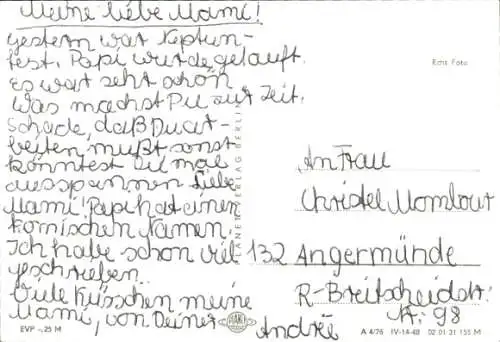 Meine liebe Mami!
Gestern war Neptun-
fest. Papi wurde getauft.
Es war seht schön
Was machst Du zur Zeit.
Schade, daß Du ar-
beiten mußt sonst
könntest Du mal
ausspannen Liebe
Mami. Papi hat einen
komischen Namen.
Ich habe schon viel
geschrieben.
Viele Küsschen meine
Mami, von Deiner
Andreé
Echt Foto
PLANET-VERLAG BERLIN
An Frau
Christel Momlour
132 Angermünde
R-Breitscheidstr.
Nr. 98
EVP -,25 M
A 4/76 IV-14-48 02 01 31 155 M